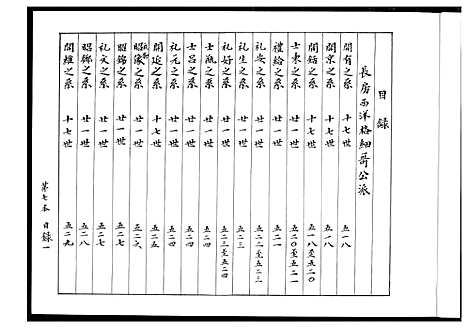 目錄
長房西洋旛細哥公派
開有之系 十七世 五一八
開京之系 十七世 五一八
開鈷之系 十七世 五一八至五二〇
士東之系 廿一世 五二〇至五二一
禮給之系 廿一世 五二一
礼安之系 廿一世 五二二至五二三
礼生之系 廿一世 五二三
礼好之系 廿一世 五二三至五二四
士漁之系 廿一世 五二四
士呂之系 廿一世 五二四
礼元之系 廿一世 五二四
開近之系 十七世 五二五
昭像之系 廿一世 五二六
昭錦之系 廿一世 五二七
礼文之系 廿一世 五二七
昭鄉之系 廿一世 五二八
開經之系 十七世 五二九
第七本 目錄一